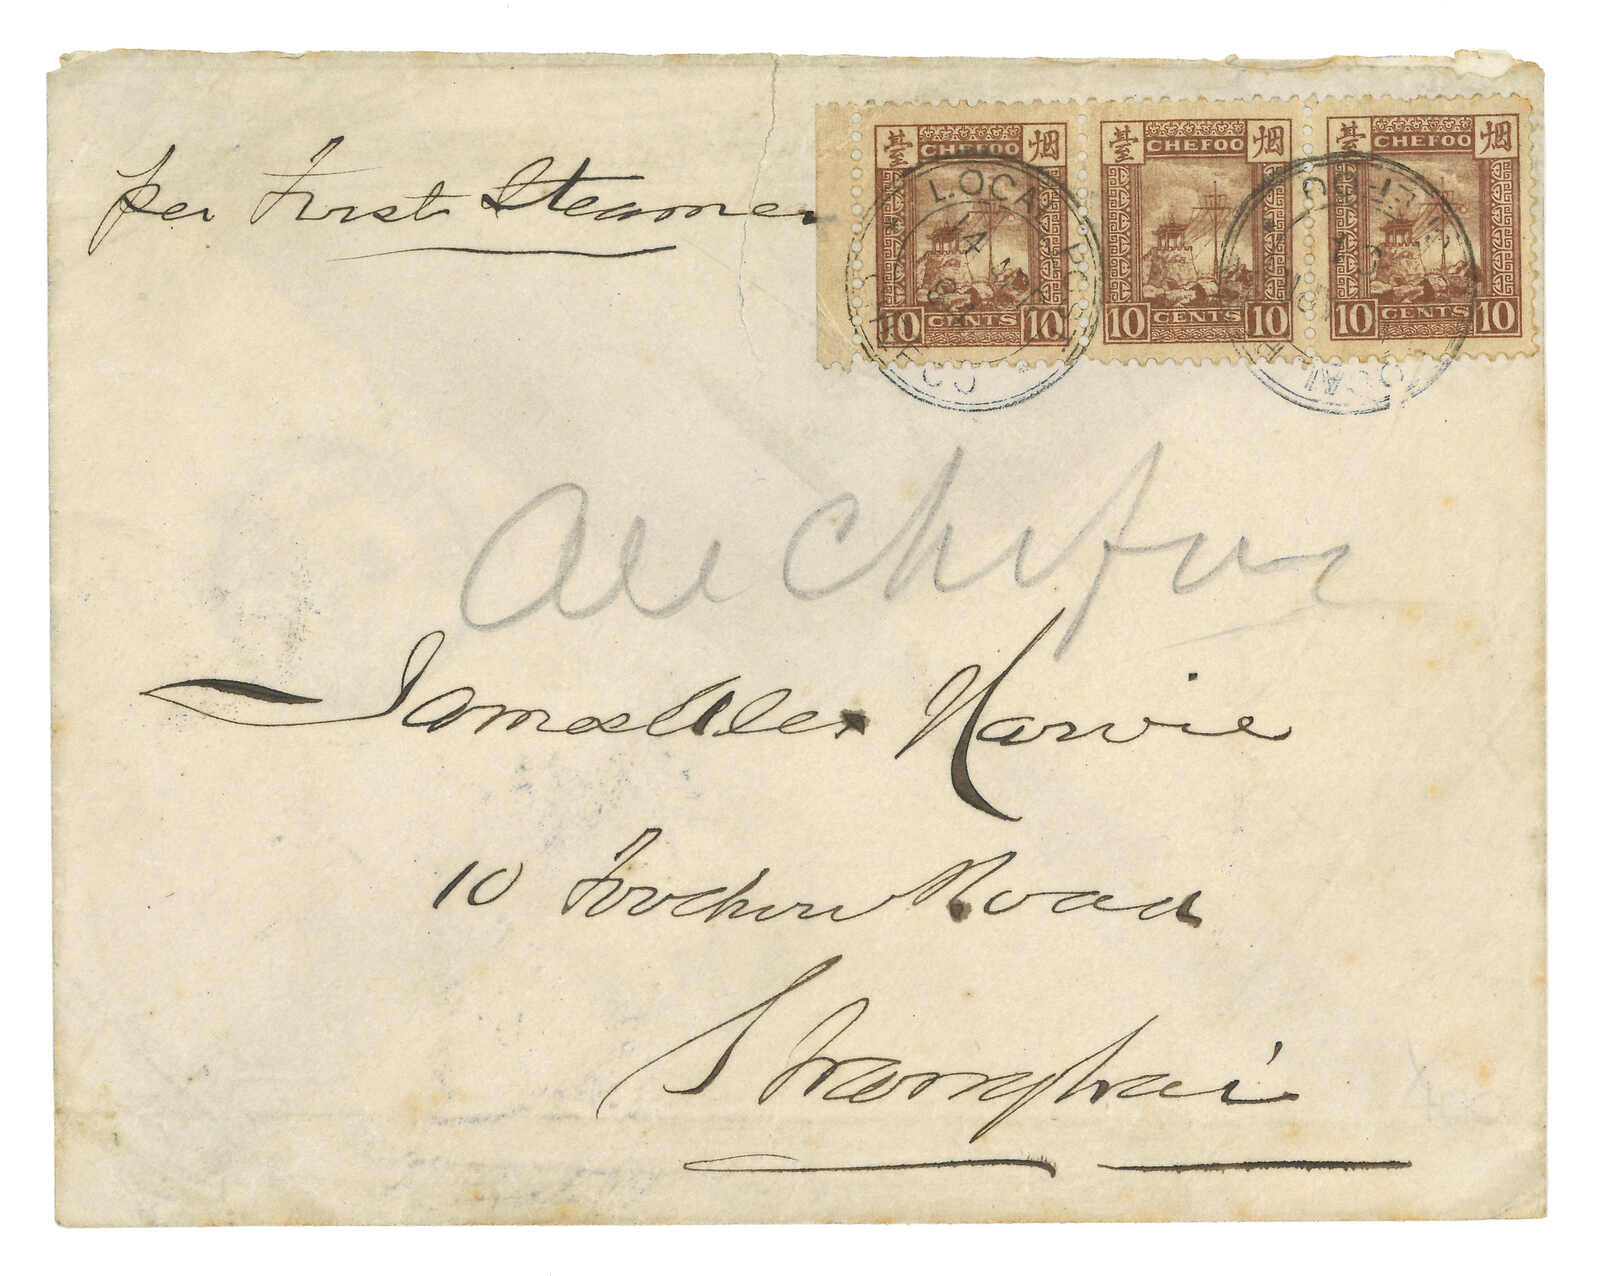 per First Steamer
臺 CHEFOO 烟
10 CENTS 10
臺 CHEFOO 烟
10 CENTS 10
臺 CHEFOO 烟
10 CENTS 10
LOCAL POST
14
CHEFOO
LOCAL POST
CHEFOO
James Alex Harvie
10 Foochow Road
Shanghai